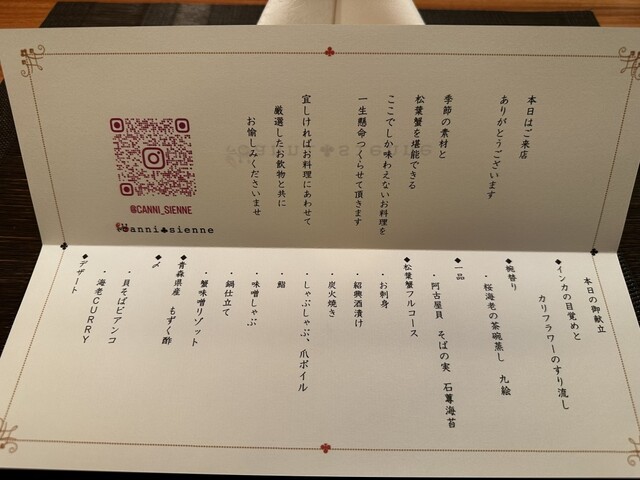 本日はご来店
ありがとうございます
季節の素材と
松葉蟹を堪能できる
ここでしか味わえないお料理を
一生懸命つくらせて頂きます
宜しければお料理にあわせて
厳選したお飲物と共に
お愉しみくださいませ
@CANNI_SIENNE
canni♣sienne
本日の御献立
◆インカの目覚めと
カリフラワーのすり流し
◆椀替り
・桜海老の茶碗蒸し 九絵
◆一品
・阿古屋貝 そばの実 石蓴海苔
◆松葉蟹フルコース
・お刺身
・紹興酒漬け
・炭火焼き
・しゃぶしゃぶ、爪ボイル
・鮨
・味噌しゃぶ
・鍋仕立て
・蟹味噌リゾット
◆青森県産 もずく酢
◆〆
・貝そばビアンコ
・海老CURRY
◆デザート